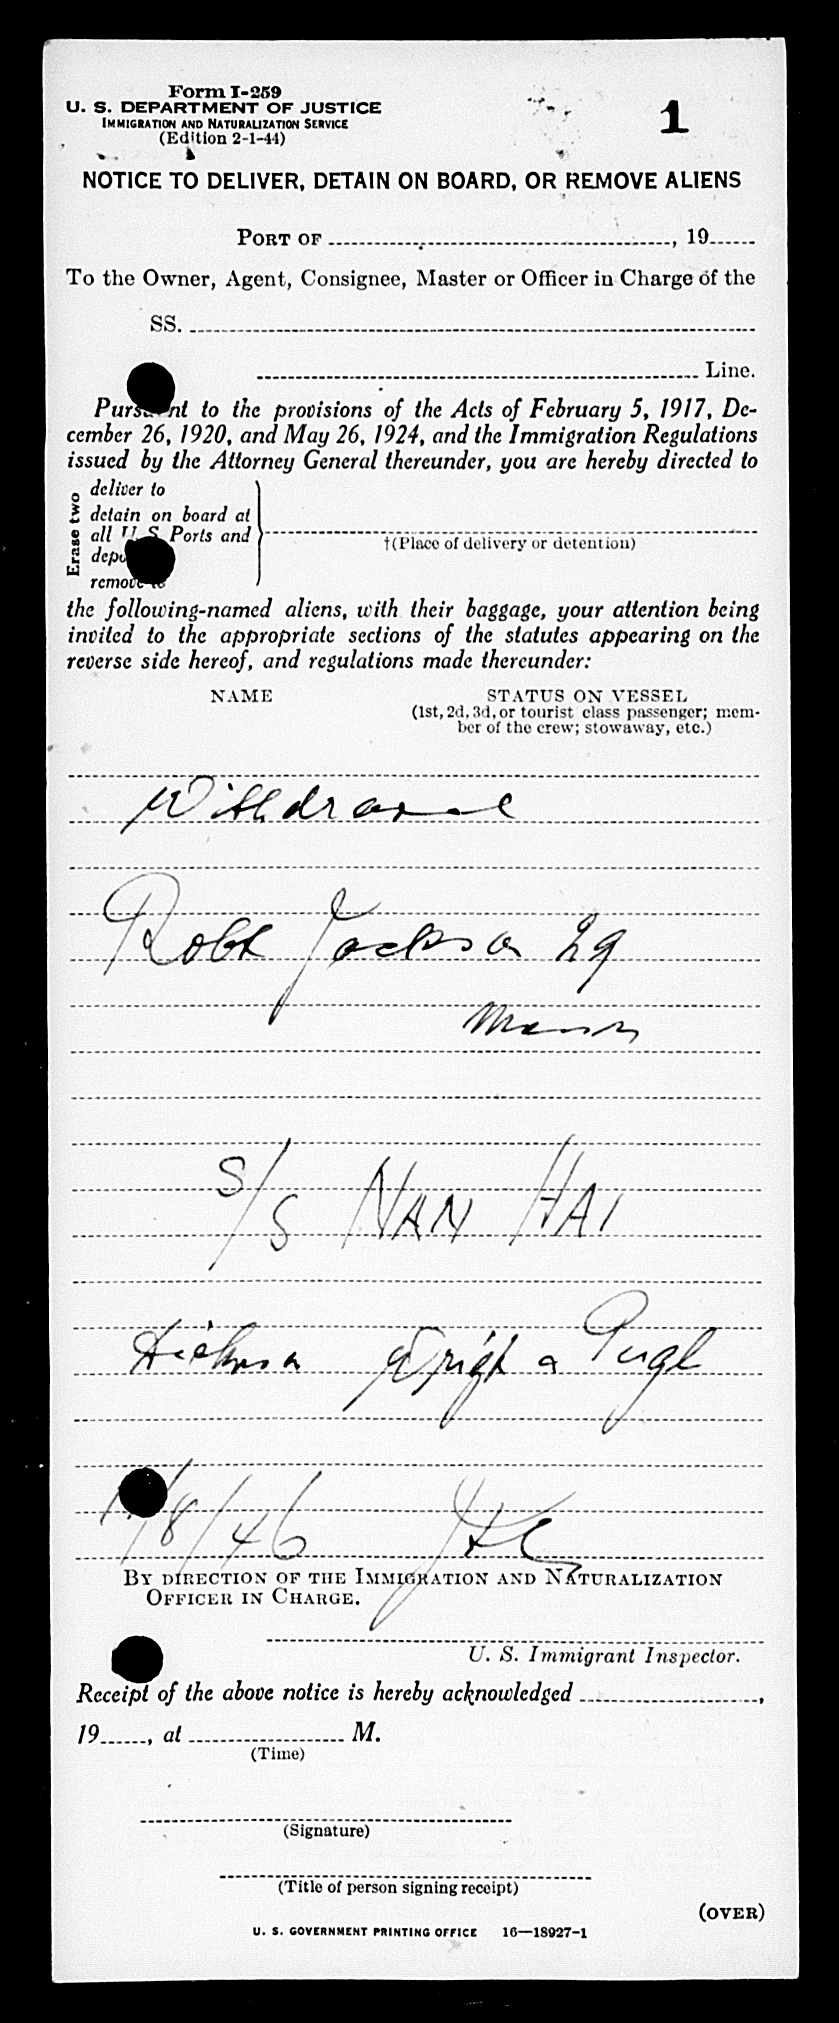 Form I-259
U. S. DEPARTMENT OF JUSTICE
IMMIGRATION AND NATURALIZATION SERVICE
(Edition 2-1-44)
1
NOTICE TO DELIVER, DETAIN ON BOARD, OR REMOVE ALIENS
PORT OF , 19
To the Owner, Agent, Consignee, Master or Officer in Charge of the
SS.
Line.
Pursuant to the provisions of the Acts of February 5, 1917, De-
cember 26, 1920, and May 26, 1924, and the Immigration Regulations
issued by the Attorney General thereunder, you are hereby directed to
Erase two
deliver to
detain on board at
all U. S. Ports and
remove to
†(Place of delivery or detention)
the following-named aliens, with their baggage, your attention being
invited to the appropriate sections of the statutes appearing on the
reverse side hereof, and regulations made thereunder:
NAME
STATUS ON VESSEL
(1st, 2d, 3d, or tourist class passenger; mem-
ber of the crew; stowaway, etc.)
Withdrawal
Robt Jackson 29
S/S NAN HAI
Wright a Pugh
/8/46
BY DIRECTION OF THE IMMIGRATION AND NATURALIZATION
OFFICER IN CHARGE.
U. S. Immigrant Inspector.
Receipt of the above notice is hereby acknowledged ,
19 , at M.
(Time)
(Signature)
(Title of person signing receipt)
(OVER)
U. S. GOVERNMENT PRINTING OFFICE 16—18927-1